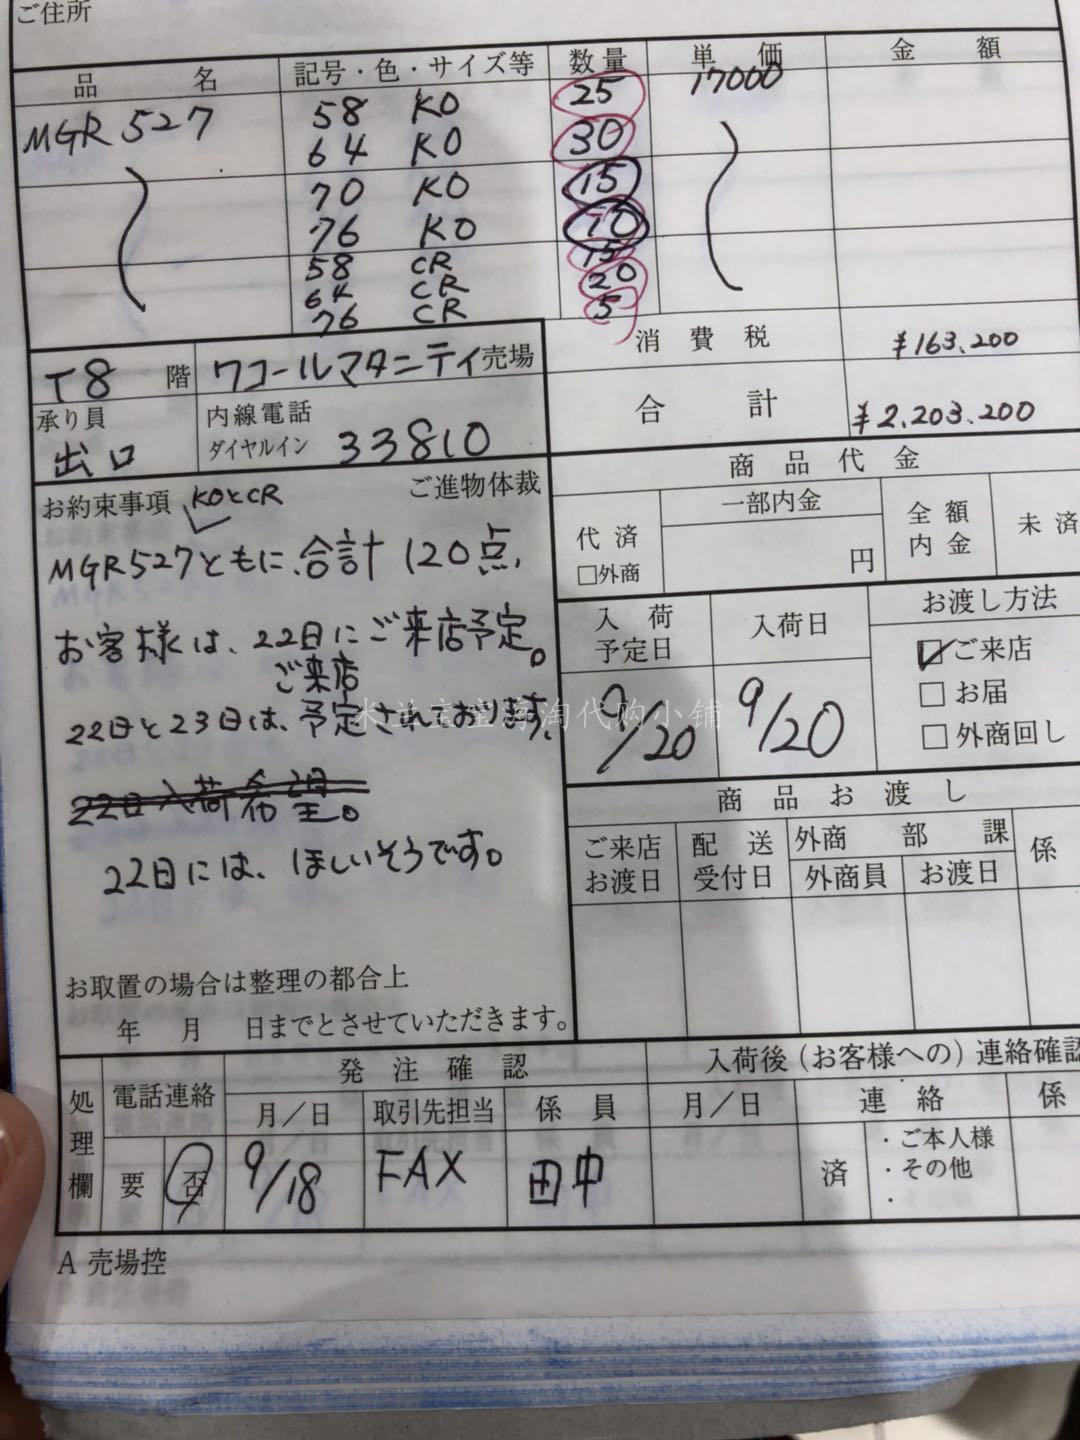 ご住所
品名 記号・色・サイズ等 数量 単価 金額
MGR527 58 KO 25 17000
64 KO 30
70 KO 15
76 KO 10
58 CR 15
64 CR 20
76 CR 5
消費税 ¥163.200
合計 ¥2.203.200
T8 階 ワコールマタニティ売場
承り員 出口
内線電話
ダイヤルイン 33810
お約束事項 KOとCR ご進物体裁
MGR527ともに、合計120点、
お客様は、22日にご来店予定。
ご来店
22日と23日は、予定されております。
22日入荷希望。
22日には、ほしいそうです。
お取置の場合は整理の都合上
年 月 日までとさせていただきます。
商品代金
代済 □外商
一部内金 円
全額内金
未済
入荷予定日 9/20
入荷日 9/20
お渡し方法
☑ご来店
□お届
□外商回し
商品お渡し
ご来店お渡日
配送受付日
外商部課
外商員 お渡日
係
処理欄
電話連絡
要 否
発注確認
月/日 取引先担当 係員
9/18 FAX 田中
入荷後(お客様への)連絡確認
月/日 連絡 係
済
・ご本人様
・その他
・
A 売場控
米兰宝宝海淘代购小铺